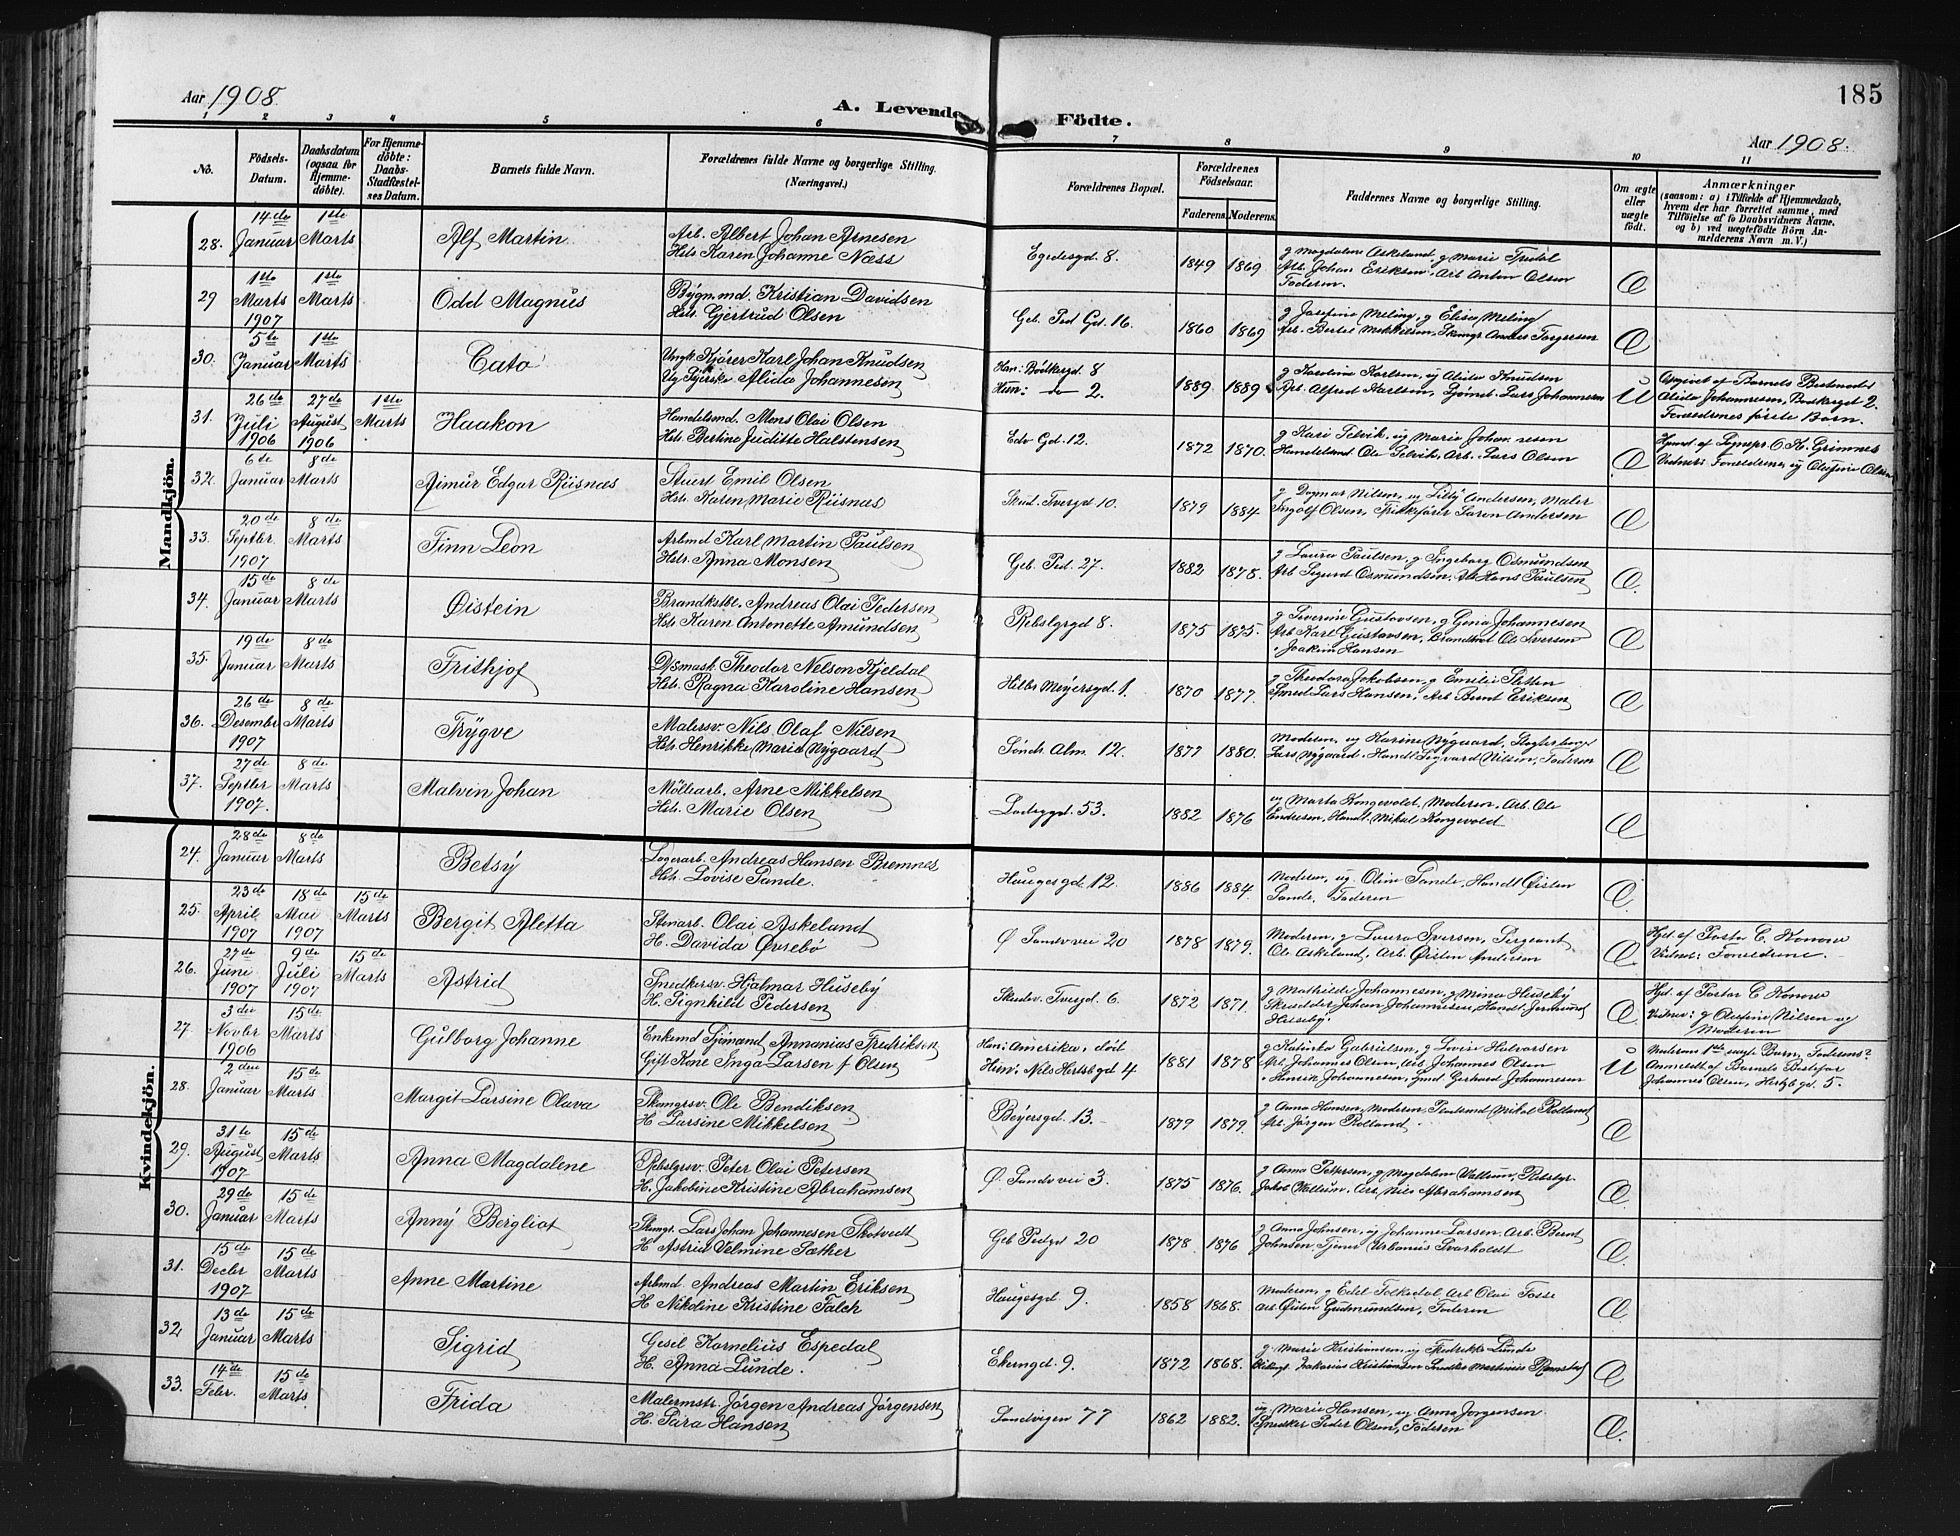 Aar 1908.
A. Levende Födte.
185
Aar 1908.
1 2 3 4 5 6 7 8 9 10 11
No.
Födsels-Datum.
Daabsdatum (ogsaa for Hjemmedöbte).
For Hjemmedöbte: Daabs-Stadfæstelses Datum.
Barnets fulde Navn.
Forældrenes fulde Navne og borgerlige Stilling.
(Næringsvei.)
Forældrenes Bopæl.
Forældrenes Födselsaar.
Faderens. Moderens.
Faddernes Navne og borgerlige Stilling.
Om ægte eller uægte födt.
Anmærkninger
(saasom: a) i Tilfælde af Hjemmedaab,
hvem der har forrettet samme, med
Tilföielse af to Daabsvidners Navne,
og b) ved uægtefödte Börn Anmelderens Navn m. V.)
Mandkjön.
28. 14de Januar 1ste Marts Alf Martin
Arb. Albert Johan Arnesen
Hstr. Karen Johanne Næss
Egedesgd. 8. 1849 1869
g Magdalene Askeland, g Marie Tredal
Arb. Johan Eriksen, Arb Anton Olsen
Faderen. Æ
29 1ste Marts 1907 1ste Marts Odd Magnus
Bygn.md. Kristian Davidsen
Hstr. Gjertrud Olsen
Geb. Ped Gd. 16. 1860 1869
g Josefine Meling, g Elisa Meling
Arb. Bertel Mikkelsen, Skomgr Andres Torgersen Æ
30. 5te Januar 1ste Marts Cato
Ungk. Kjører Karl Johan Knudsen
Ug Syerske Alida Johannesen
Han: Bödkergd 8
Hun: — 2. 1889 1889
g Karoline Karlsen, ug Alida Knudsen
Arb. Alfred Karlsen, Sjömd. Lars Johannesen U
Opgivet af Barnets Bestmoder
Alida Johannesen, Bödkergd 2.
Forældrenes förste Barn.
31. 26de Juli 1906 27de August 1906 1ste Marts Haakon
Handelsmd. Mons Olai Olsen
Hstr. Bertine Juditte Halstensen
Edv Gd. 12. 1872 1870.
g Kari Selvik, ug Marie Johannesen
Handelsmd Ole Selvik, Arb. Lars Olsen Æ
Hjmd. af Sognepr. O. H. Grimnes
Vidner: Forældrene, ug Olufine Olsen
32. 6de Januar 8de Marts Reimar Edgar Riisnæs
Stuert Emil Olsen
Hstr. Karen Marie Riisnæs
Skud. Tvergd 10. 1879 1884.
g Dagmar Nilsen, ug Lilly Andersen, Maler
Ingolf Olsen, Trikkefører Søren Andersen Æ
33. 20de Septbr. 1907 8de Marts Finn Leon
Arbmd Karl Martin Paulsen
Hstr. Anna Monsen
Geb. Ped. 27. 1882 1878.
g Laura Paulsen, g Ingeborg Osmundsen
Arb Sigurd Osmundsen, Arb Hans Paulsen Æ
34. 15de Januar 8de Marts Øistein
Brandkstbr. Andreas Olai Pedersen
Hstr Karen Antonette Amundsen
Rebslgrgd 8. 1875 1875.
g Severine Gustavsen, g Gina Johannesen
Arb Karl Gustavsen, Brandkst Ole Iversen
Joakim Hansen Æ
35. 19de Januar 8de Marts Frithjof
Dsmask. Theodor Nelson Kjeldal
Hstr. Ragna Karoline Hansen
Hilbr Meyersgd. 1. 1870 1877.
g Theodora Jakobsen, g Emilie Sletten
Smed Lars Hansen, Arb Bernt Eriksen Æ
36. 26de Desembr 1907 8de Marts Trygve
Malersv. Nils Olaf Nilsen
Hstr. Henrikke Marie Nygaard
Söndr Alm. 12. 1877 1880.
Moderen, ug Karine Nygaard,
Lars Nygaard, Handl Sigvard Nilsen, Faderen Æ
37. 27de Septbr 1907. 8de Marts Malvin Johan
Møllearb. Arne Mikkelsen
Hstr. Marie Olsen
Ladegd. 53. 1882 1876
ug Marta Kongevold, Moderen, Arb. Ole
Endresen, Handl. Mikal Kongevold Æ
Kvindekjön.
24. 28de Januar 8de Marts Betsy
Lagerarb. Andreas Hansen Bremnes
Hstr. Lovise Sande.
Haugesgd. 12 1886 1884.
Moderen, ug Oline Sande, Handl Øisten
Sande, Faderen Æ
25. 23de April 1907 18de Mai 1907 15de Marts Bergit Aletta
Stenarb. Olai Askeland
H. Davida Øvrebö
Ø Sandvvei 20 1878 1879.
Moderen, g Laura Iversen, Sergeant
Ole Askeland, Arb. Øisten Andersen Æ
Hjd. af Pastor C. Konow
Vidner: Forældrene.
26. 27de Juni 1907 9de Juli 1907 15de Marts Astrid
Snedkersv. Hjalmar Huseby
H. Signhild Pedersen
Skudev. Tvergd 6. 1872 1871.
g Mathilde Johannesen, g Mina Huseby
Skrædder Johan Johannesen, Handl.
Huseby. Æ
Hjd. af Pastor C Konow
Vidner: g Olufine Nilsen og
Moderen
27. 3die Novbr 1906 15de Marts Gulborg Johanne
Enkemd Sjömand Annanias Fredriksen
Gift Kone Inga Larsen f Olsen
Han: Amerika,
Hun: Nils Hertzbgd 4 1881 1878
g Katinka Gabrielsen, g Lovise Halvorsen
Arb. Johannes Olsen, Arb Johannes Olsen
Henrik Johannesen, Smd. Gerhard Johannesen U
Moderens 1ste uægte Barn, Faderens?
Anmeldt af Barnets Bestefar
Johannes Olsen, Hertzbgd. 5.
28. 2den Januar 15de Marts Margit Larsine Olava
Skomgrsv. Ole Bendiksen
H Larsine Mikkelsen
Beyersgd. 13. 1879 1879.
g Anna Hansen, Moderen, Mikal Rolland
Arb. Jörgen Rolland. Æ
29. 31te August 1907 15de Marts Anna Magdalene
Rebslgrsv. Peter Olai Petersen
H. Jakobine Kristine Abrahamsen
Ø. Sandvvei 3. 1875 1876.
g Anna Pettersen, g Magdalene Vallum, Rebslgr.
Jakob Vallum, Arb. Nils Abrahamsen Æ
30. 29de Januar 15de Marts Anny Bergliot
Skomgr. Lars Johan Johannesen Skotvedt
H Astrid Velmine Sætker
Geb Pedgd 20 1878. 1876
g Anna Johnsen, ug Johanne Larsen. Arb. Bernt
Johnsen, Tjener Urbanius Svarholdt Æ
31. 15de Decbr 1907 15de Marts Anne Martine
Arbmd. Andreas Martin Eriksen
H Nikoline Kristine Falch
Haugesgd. 9. 1858 1868.
Moderen, g Edel Folkedal Arb Olai Fosse
Arb. Øisten Gudmundsen, Faderen Æ
32. 13de Januar 15de Marts Sigrid
Gesel Kornelius Espedal
H. Anna Lunde.
Ekerngd. 9. 1872 1868.
g. Marie Kristiansen, ug Fredrikke Lunde
Zakarias Kristiansen Snedker Martinius Ramstad Æ
33. 14de Febr. 15de Marts Frida
Malermstr. Jörgen Andreas Jörgensen
H. Sara Hansen
Sandvigen 77 1862 1882.
ug. Marie Hansen, ug Anna Jörgensen
Snedker Peder Olsen, Faderen Æ.